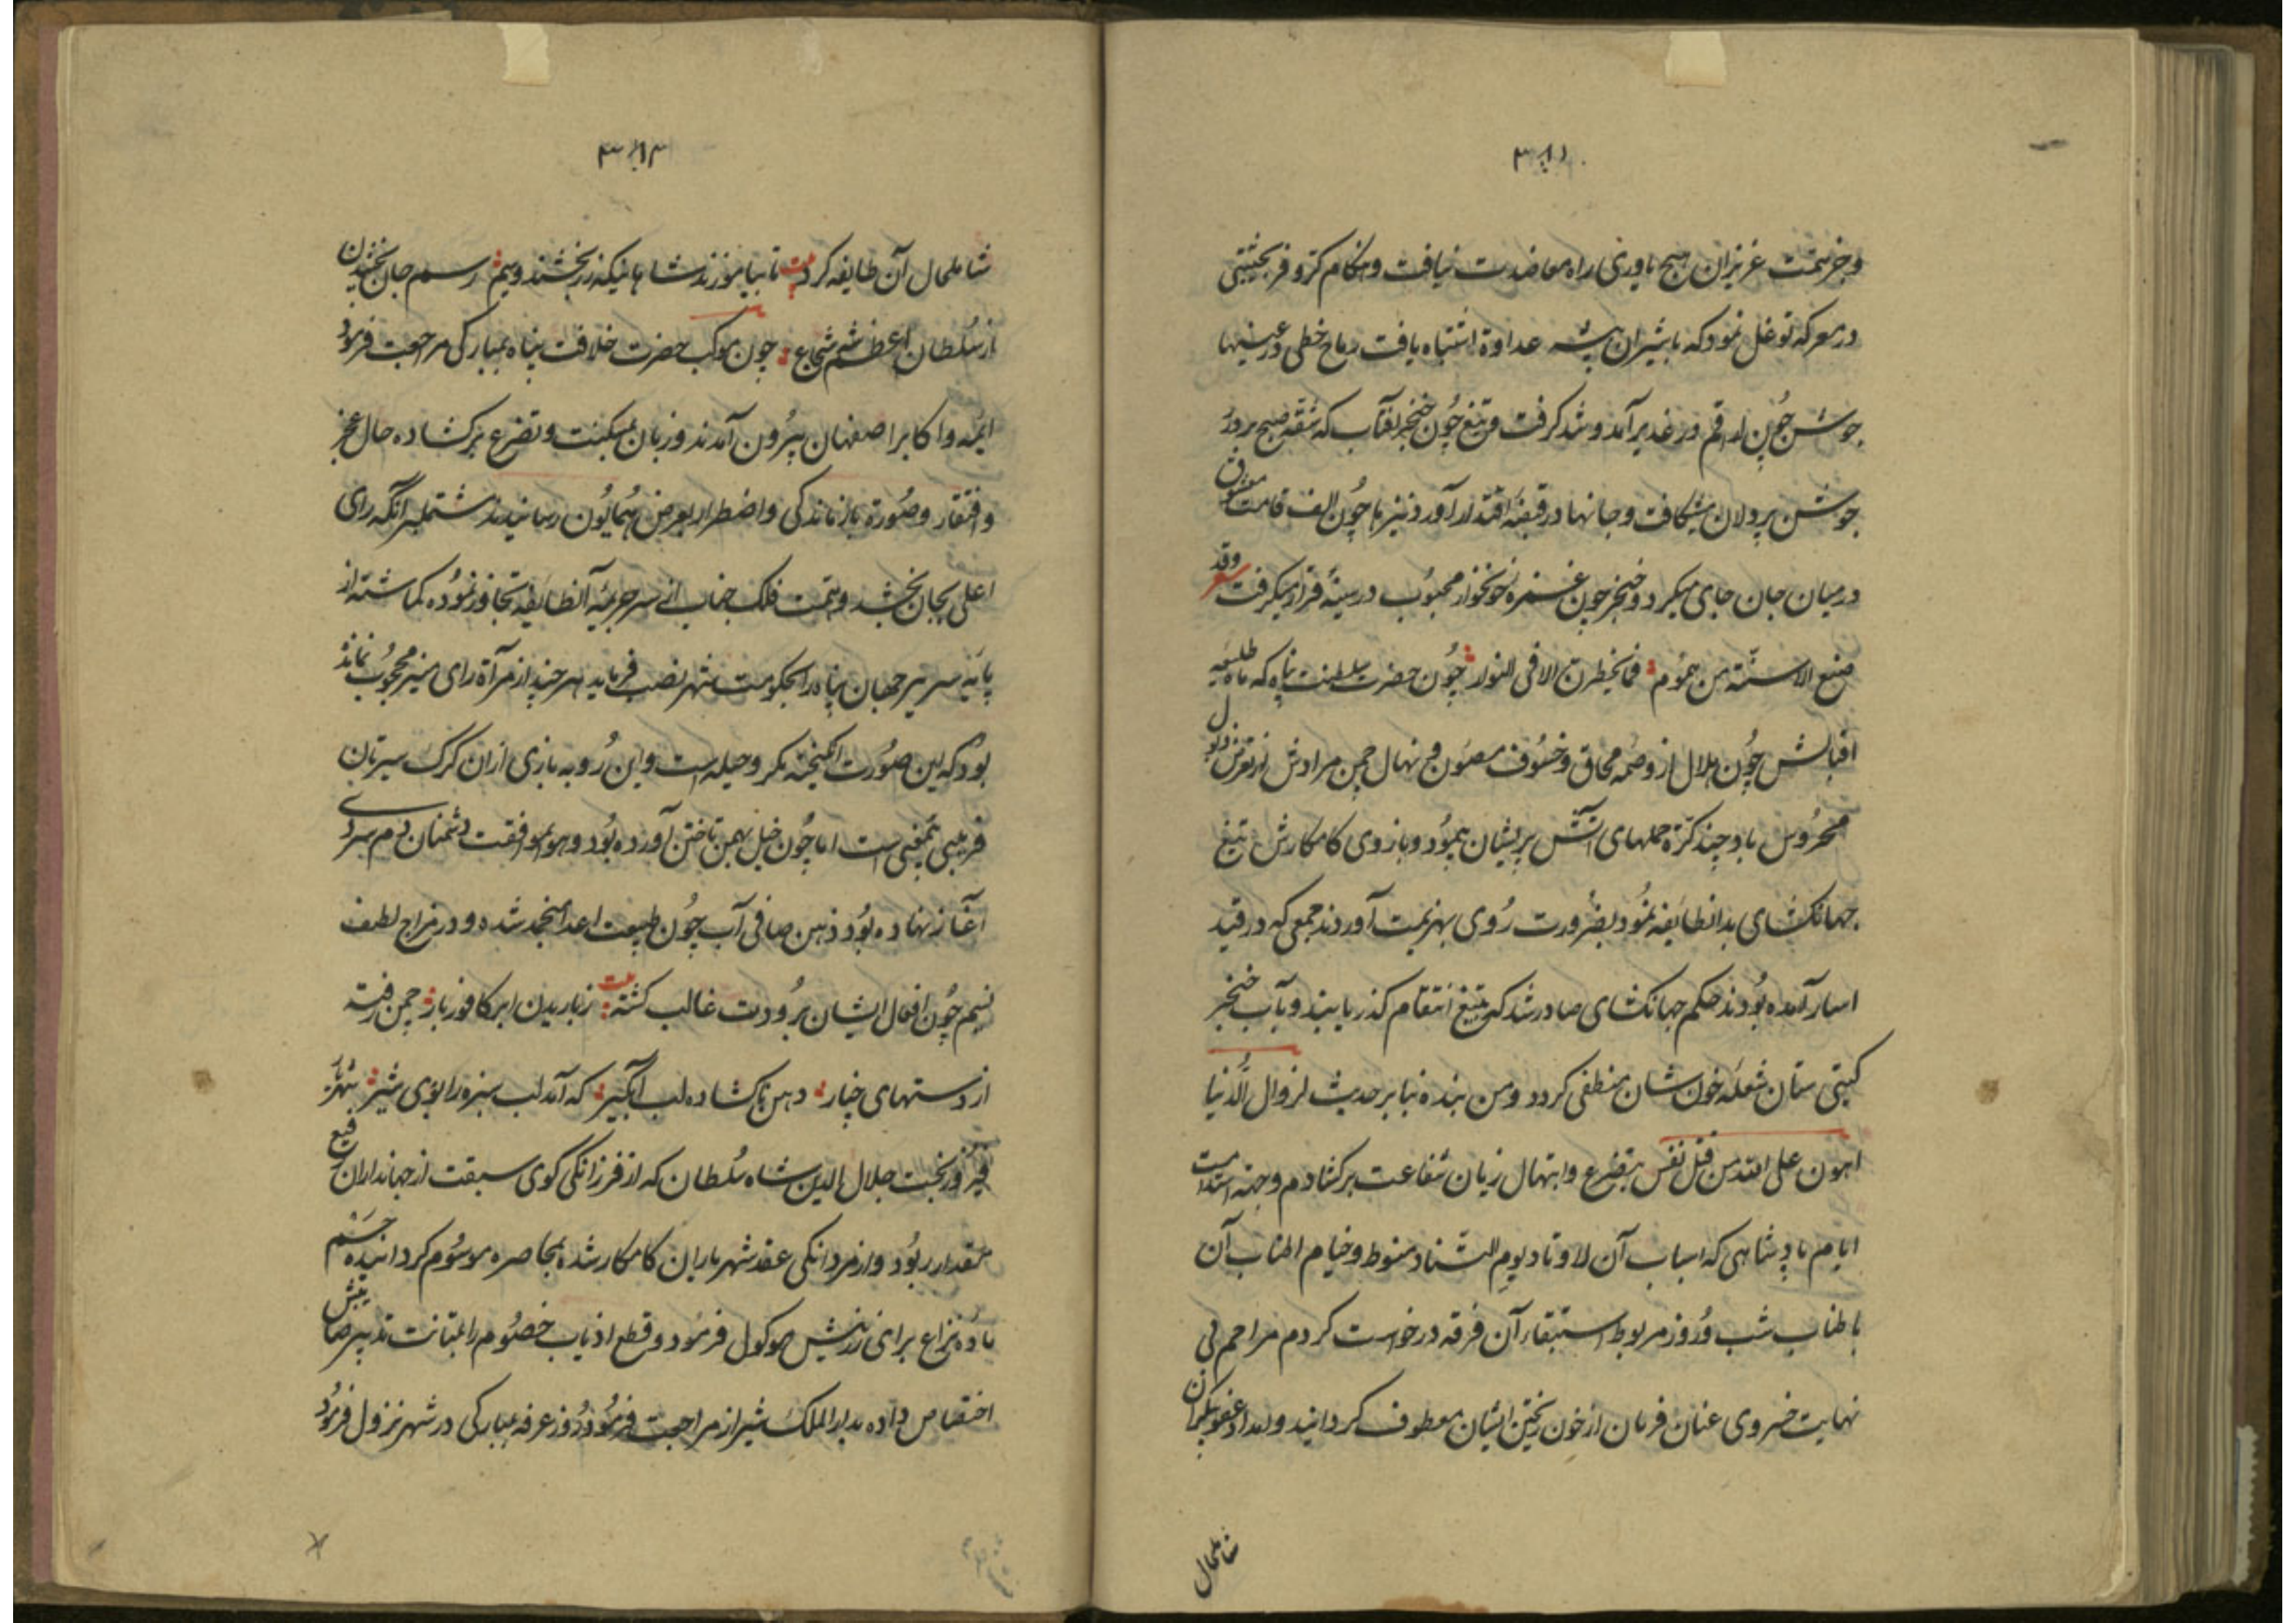 و جز همت عزیزان هیچ یاوری راه معاضدت نیافت و هنگام کر و فر بجنبشی
در معرکه توغل نمود که با شیران بیشه عداوة اشتباه یافت رماح خطی در عینها
جوشن چون ارقم در غدیر آمد و شد گرفت و تیغ چون خنجر آفتاب که شقه صبح بردرد
جوشن پردلان بشکافت و جانها در قبضه اقتدار آورد نیزها چون الف قامت معشوق
در میان جان جای میکرد و خنجر چون غمزه خونخوار محبوب در سینه قرار میگرفت وقد
صنع الاسنة من هموم فما یخطرن الا فی چون حضرت سلطنت پناه که ماه طلیعه
اقبالش چون هلال از وصمه محاق و خسوف مصون و نهال چمن مرادش از تعرض ذبول
محروس باد چند کرة حملهای آتش بریشان بپیمود و بازوی کامکارش تیغ
جهانگشای بدانطایفه نمود بضرورت روی بهزیمت آوردند جمعی که در قید
اسار آمده بودند حکم جهانگشای صادر شد که بتیغ انتقام گذرانیند و بآب خنجر
گیتی ستان شعله خون شان منطفی گردد و من بنده بنابر حدیث لزوال الدنیا
اهون علی الله من قتل نفس بتضرع و ابتهال زبان شفاعت برگشادم و جهة استدامت
ایام پادشاهی که اسباب آن لا وتاد یوم التناد منوط و خیام اطناب آن
باطناب شب و روز مربوط استبقاء آن فرقه درخواست کردم مراحم بی
نهایت خسروی عنان فرمان از خون ریختن ایشان معطوف گردانید و امداد عفو بیکران
شاملحال
۳۸۳
شاملحال آن طایفه کرد بیت تا بیاموزند شاهانیکه زر بخشند و سیم رسم جان بخشیدن
از سلطان اعظم شه شجاع چون موکب حضرت خلافت پناه بمبارکی مراجعت فرمود
ایمه و اکابر اصفهان بیرون آمدند و زبان بمسکنت و تضرع برگشاده حال عجز
و افتقار و صورة بازماندگی و اضطرار بعرض همایون رسانیدند مشتمل بر آنکه رای
اعلی بجان بخشد و همت فلک جناب از سر جریمه آنطایفه تجاوز نموده گماشته از
پایه سریر جهان پناه را بحکومت شهر نصب فرماید هر چند از مرآة رای منیر محجوب نماند
بود که این صورت انگیخته مکر و حیله است و این روبه بازی ازان گرگ سیرتان
فریبی بمیغی است اما چون خیل بهمن تاختن آورده بود و هوا بموافقت دشمنان دم سردی
آغاز نهاده بود ذهن صافی آب چون طبیعت اعدا منجمد شده و در مزاج لطیف
نسیم چون افعال ایشان برودت غالب گشته بیت ز باریدن ابر کافور بار چمن رفته
از دستهای چنار دهن ناگشاده لب آبگیر که آمد لب سبزه را بوی شیر شهزاده
فیروزبخت جلال الدین شاه سلطان که از فرزانگی گوی سبقت از جهانداران رفیع
مقدار ربود و از مردانگی عقد شهریاران کامکار شده بمحاصره موسوم گردانیده حسم
ماده نزاع برای زرینش موکول فرمود و قطع اذناب خصوم را بمتانت تدبیر صایبش
اختصاص داده بدار الملک شیراز مراجعت فرمود و روز عرفه بمبارکی در شهر نزول فرمود